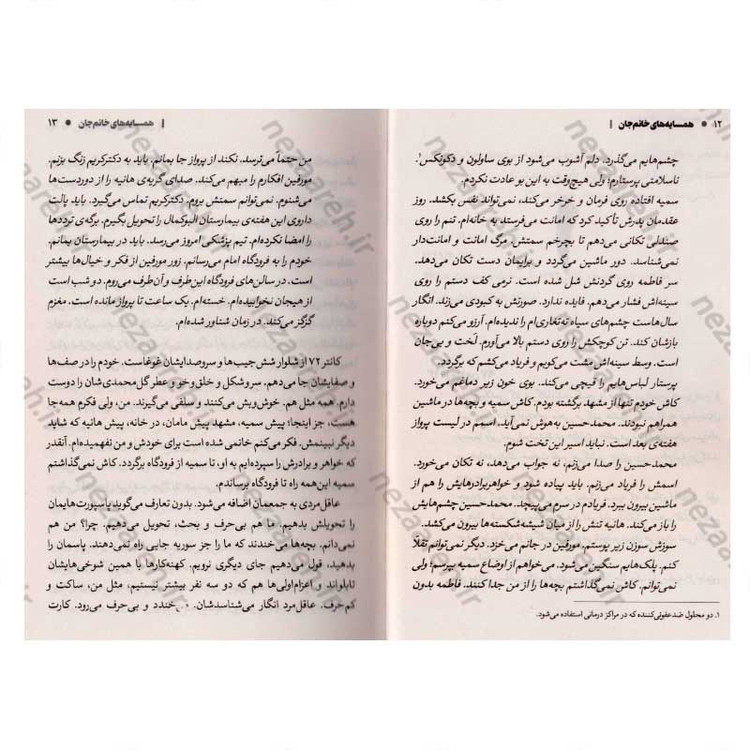 ۱۲ ● همسایه‌های خانم‌جان |
چشم‌هایم می‌گذرد. دلم آشوب می‌شود از بوی ساولون و دکونکس۱.
ناسلامتی پرستارم؛ ولی هیچ‌وقت به این بو عادت نکردم.
سمیه افتاده روی فرمان و خرخر می‌کند، نمی‌تواند نفس بکشد. روز
عقدمان پدرش تأکید کرد که امانت می‌فرستد به خانه‌ام. تنم را روی
صندلی تکانی می‌دهم تا بچرخم سمتش. مرگ امانت و امانت‌دار
نمی‌شناسد. دور ماشین می‌گردد و برایمان دست تکان می‌دهد.
سر فاطمه روی گردنش شل شده است. نرمی کف دستم را روی
سینه‌اش فشار می‌دهم، فایده ندارد. صورتش به کبودی می‌زند. انگار
سال‌هاست چشم‌های سیاه ته‌تغاری‌ام را ندیده‌ام. آرزو می‌کنم دوباره
بازشان کند. تن کوچکش را روی دستم بالا می‌آورم. لَخت و بی‌جان
است. وسط سینه‌اش مشت می‌کوبم و فریاد می‌کشم که برگردد.
پرستار لباس‌هایم را قیچی می‌کند. بوی خون زیر دماغم می‌خورد.
کاش خودم تنها از مشهد برگشته بودم. کاش سمیه و بچه‌ها در ماشین
همراهم نبودند. محمدحسین به‌هوش نمی‌آید. اسمم در لیست پرواز
هفته‌ی بعد است. نباید اسیر این تخت شوم.
محمدحسین را صدا می‌زنم، نه جواب می‌دهد، نه تکان می‌خورد.
اسمش را فریاد می‌زنم. باید پیاده شود و خواهربرادرهایش را از
ماشین بیرون ببرد. فریادم در سرم می‌پیچد. محمدحسین چشم‌هایش
را باز می‌کند. هانیه تنش را از میان شیشه‌شکسته‌ها بیرون می‌کشد.
سوزش سوزن زیر پوستم. مورفین در جانم می‌خزد. دیگر نمی‌توانم تقلّا
کنم. پلک‌هایم سنگین می‌شود. می‌خواهم از اوضاع سمیه بپرسم؛ ولی
نمی‌توانم. کاش نمی‌گذاشتم بچه‌ها را از من جدا کنند. فاطمه بدون
۱. دو محلول ضدعفونی‌کننده که در مراکز درمانی استفاده می‌شود.
| همسایه‌های خانم‌جان ● ۱۳
من حتماً می‌ترسد. نکند از پرواز جا بمانم. باید به دکترکریم زنگ بزنم.
مورفین افکارم را مبهم می‌کند. صدای گریه‌ی هانیه را از دوردست‌ها
می‌شنوم. نمی‌توانم سمتش بروم. دکترکریم تماس می‌گیرد. باید پالت
داروی این هفته‌ی بیمارستان البوکمال را تحویل بگیرم. برگه‌ی ترددها
را امضا نکرده‌ام. تیم پزشکی امروز می‌رسد. باید در بیمارستان بمانم.
خودم را به فرودگاه امام می‌رسانم. زور مورفین از فکر و خیال‌ها بیشتر
است. در سالن‌های فرودگاه این‌طرف و آن‌طرف می‌روم. دو شب است
از هیجان نخوابیده‌ام. خسته‌ام. یک ساعت تا پرواز مانده است. مغزم
گزگز می‌کند. در زمان شناور شده‌ام.
کانتر ۷۲ از شلوار شش‌جیب‌ها و سروصدایشان غوغاست. خودم را در صف‌ها
و صفایشان جا می‌دهم. سروشکل و خلق‌وخو و عطر گل‌محمدی‌شان را دوست
دارم. همه مثل هم. خوش‌وبش می‌کنند و سلفی می‌گیرند. من، ولی فکرم همه‌جا
هست، جز اینجا؛ پیش سمیه، مشهد پیش مامان، در خانه، پیش هانیه که شاید
دیگر نبینمش. فکر می‌کنم خانمی شده است برای خودش و من نفهمیده‌ام. آنقدر
که خواهر و برادرش را سپرده‌ایم به او، تا سمیه از فرودگاه برگردد. کاش نمی‌گذاشتم
سمیه این‌همه راه تا فرودگاه برساندم.
عاقل‌مردی به جمعمان اضافه می‌شود. بدون تعارف می‌گوید پاسپورت‌هایمان
را تحویلش بدهیم. ما هم بی‌حرف و بحث، تحویل می‌دهیم. چرا؟ من هم
نمی‌دانم. بچه‌ها می‌خندند که ما را جز سوریه جایی راه نمی‌دهند. پاسمان را
بدهید، قول می‌دهیم جای دیگری نرویم. کهنه‌کارها با همین شوخی‌هایشان
تابلواند و اعزام‌اولی‌ها هم که دو سه نفر بیشتر نیستیم، مثل من، ساکت و
کم‌حرف. عاقل‌مرد انگار می‌شناسدشان. می‌خندد و بی‌حرف می‌رود. کارت
nezaareh.ir